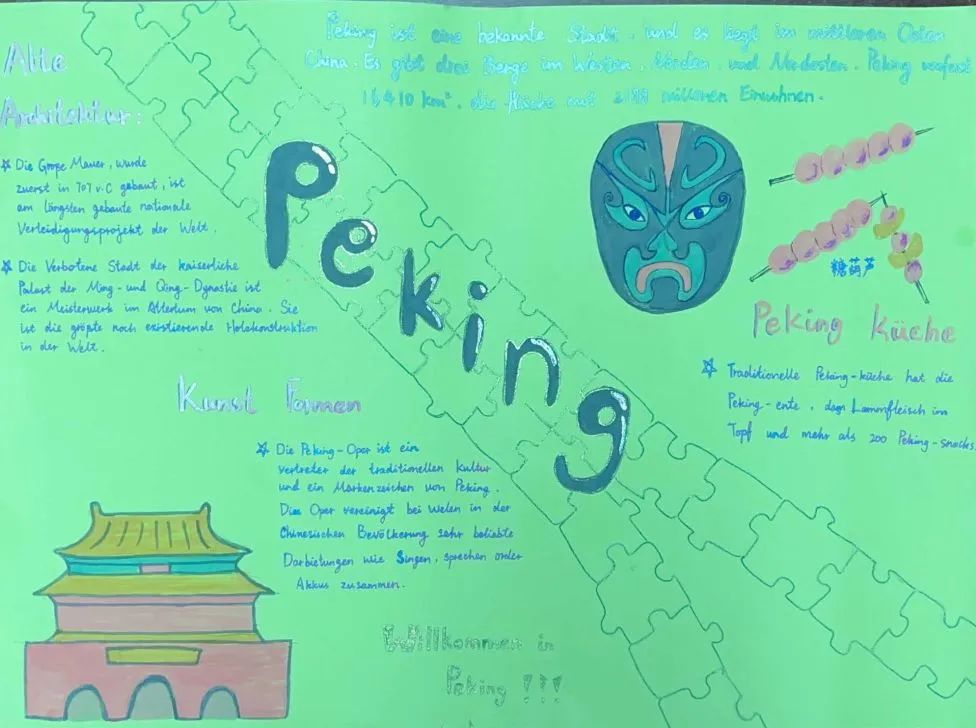 Peking ist eine bekannte Stadt, und es liegt im mittleren Osten
China. Es gibt drei Berge im Westen, Norden, und Nordosten. Peking
16410 km², die Fläche mit 2188 millonen Einwohnen.
Alte
Architektur:
Die Große Mauer, wurde
zuerst in 707 v.C gebaut, ist
am längsten gebaute nationale
Verleidigungsprojekt der Welt.
Die Verbotene Stadt der kaiserliche
Palast der Ming- und Qing-Dynastie ist
ein Meisterwerk im Altertum von China. Sie
ist die größte noch existierende Holzkonstruktion
in der Welt.
Peking
糖葫芦
Peking küche
Traditionelle Peking-küche hat die
Peking-ente, dann Lammfleisch im
Topf und mehr als 200 Peking-snacks.
Kunst Formen
Die Peking-Oper ist ein
vertreter der traditionellen Kultur
und ein Markenzeichen von Peking.
Die Oper vereinigt bei Welen in der
Chinesischen Bevölkerung sehr beliebte
Darbietungen wie Singen, sprechen order
Akkus zusammen.
Willkommen in
Peking !!!